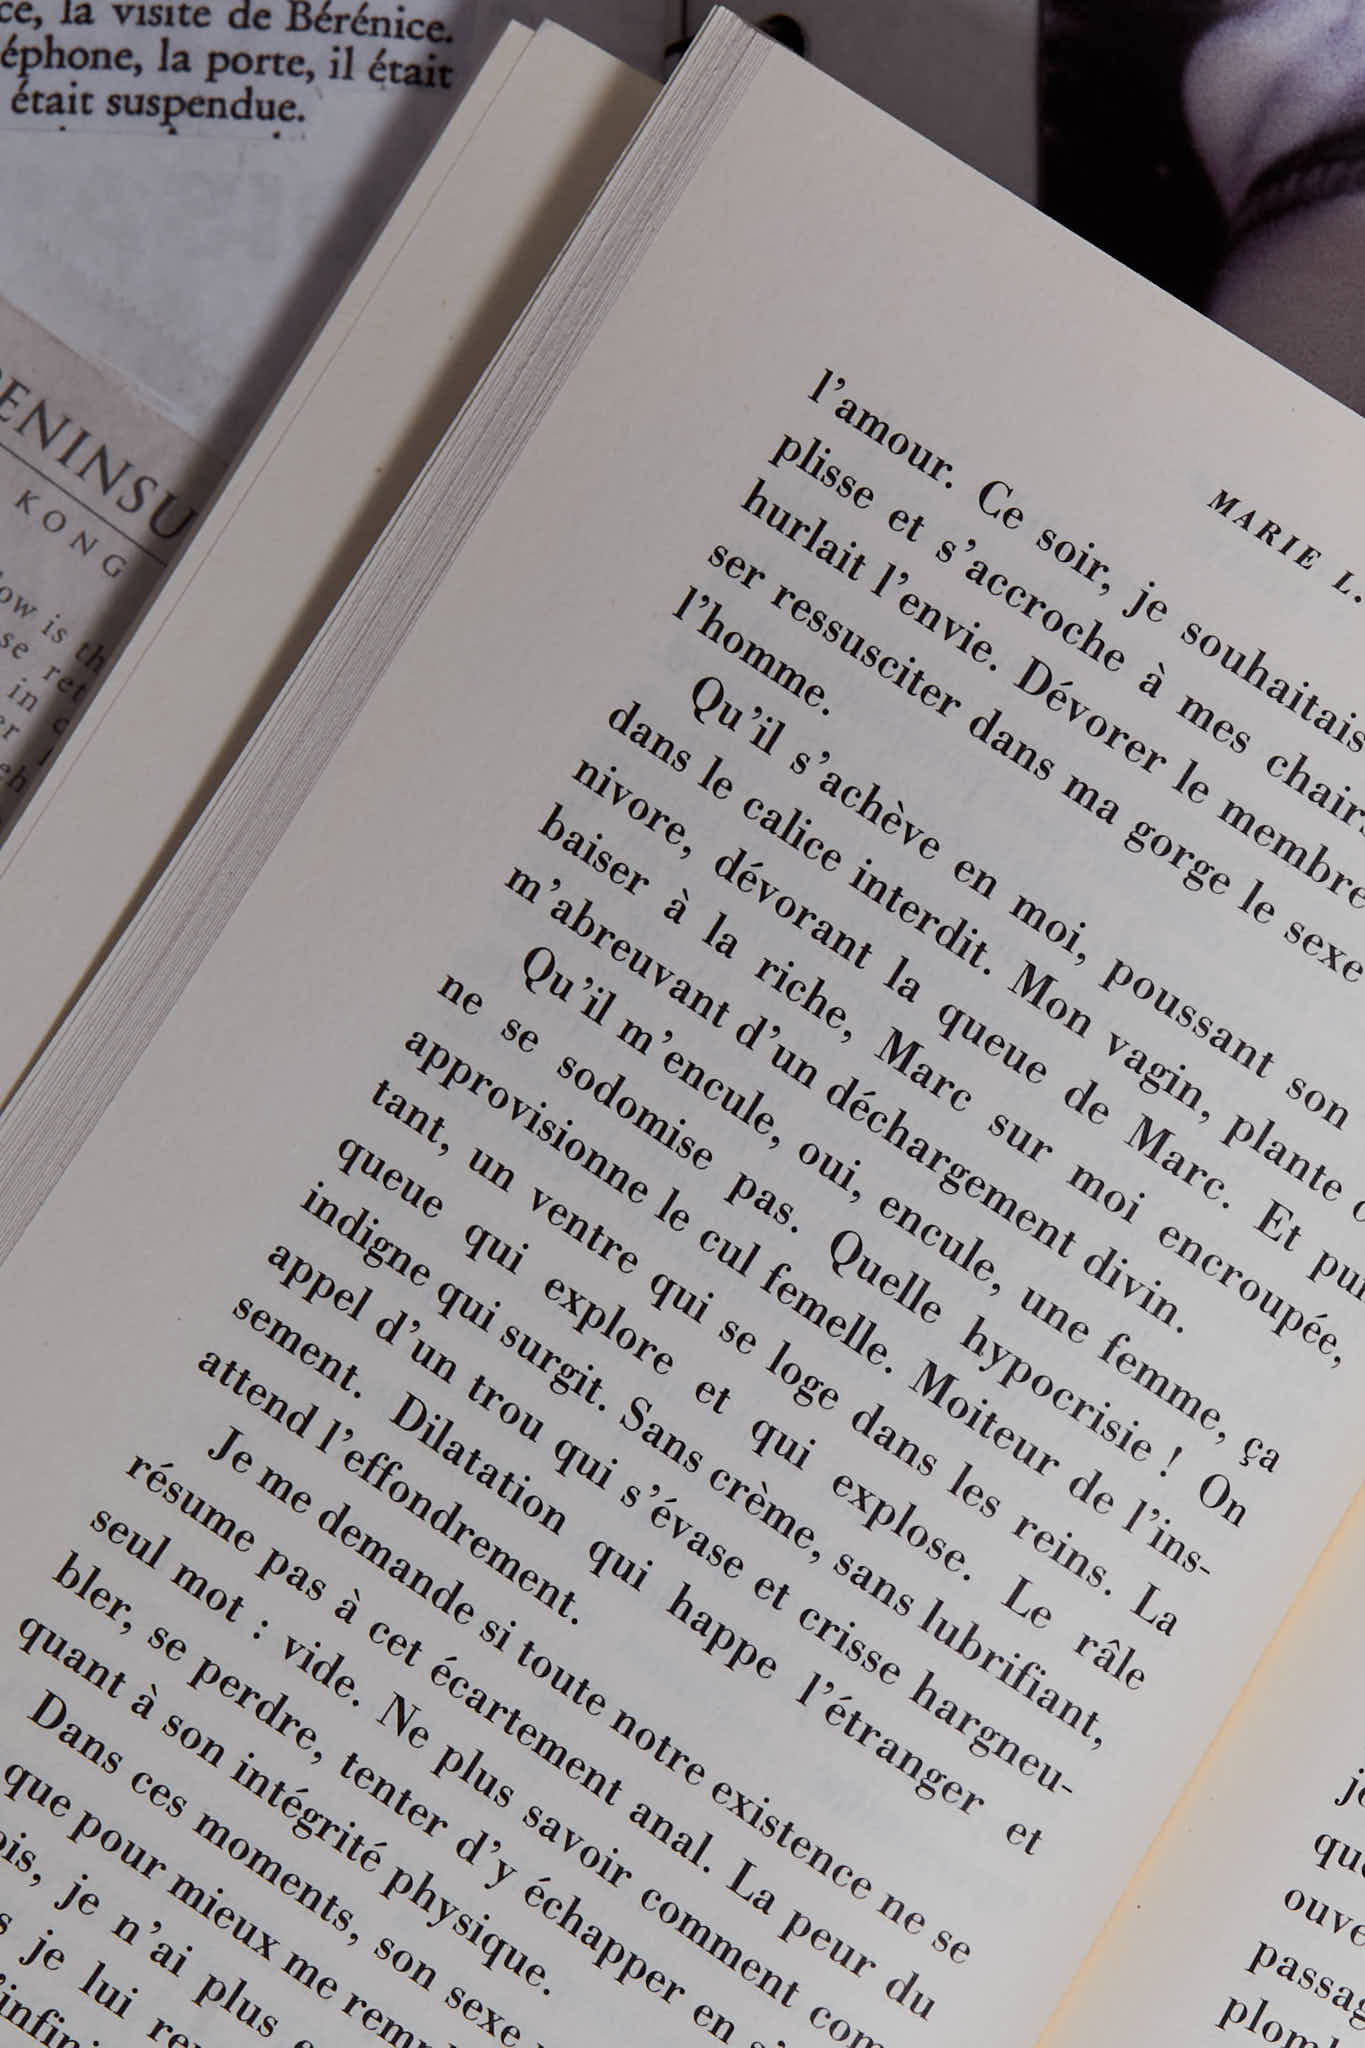 ce, la visite de Bérénice.
éphone, la porte, il était
était suspendue.
ENINSU
KONG
low is th
se ret
in
er
eh
MARIE L.
l'amour. Ce soir, je souhaitais
plisse et s'accroche à mes chair
hurlait l'envie. Dévorer le membre
ser ressusciter dans ma gorge le sexe
l'homme.
Qu'il s'achève en moi, poussant son
dans le calice interdit. Mon vagin, plante c
nivore, dévorant la queue de Marc. Et pui
baiser à la riche, Marc sur moi encroupée,
m'abreuvant d'un déchargement divin.
Qu'il m'encule, oui, encule, une femme, ça
ne se sodomise pas. Quelle hypocrisie ! On
approvisionne le cul femelle. Moiteur de l'ins-
tant, un ventre qui se loge dans les reins. La
queue qui explore et qui explose. Le râle
indigne qui surgit. Sans crème, sans lubrifiant,
appel d'un trou qui s'évase et crisse hargneu-
sement. Dilatation qui happe l'étranger et
attend l'effondrement.
Je me demande si toute notre existence ne se
résume pas à cet écartement anal. La peur du
seul mot : vide. Ne plus savoir comment com
bler, se perdre, tenter d'y échapper en s'
quant à son intégrité physique.
Dans ces moments, son sexe
que pour mieux me rempl
ois, je n'ai plus
s je lui re
'infini
je
que
ouve
passag
plomb